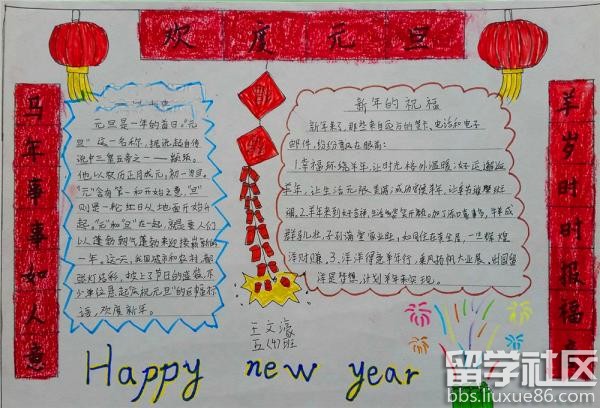 欢度元旦
马年事事如人意
羊岁时时报福音
元旦是一年的首日。"元
旦"这一名称，据说起自传
说中三皇五帝之一——颛顼。
他以农历正月为元，初一为旦。
"元"含有第一和开始之意，"旦"
则是一轮红日从地面开始升
起。"元"和"旦"在一起，就是要人们
以蓬勃朝气来迎接崭新的
一年。这一天，我国城市和农村，都
张灯结彩，披上了节日的盛装，不
少单位悬起"庆祝元旦"的巨幅标
语，欢度新年。
新年的祝福
新年来了，那些来自四方的贺卡、电话和电子
邮件，纷纷飘在眼前：
1.幸福环绕羊年，让时光格外温暖；好运邂逅
羊年，让生活无限美满；成功守候羊年，让
2.羊年来到好吉祥，
群乳业，
洋财赚。3、洋洋得意羊年行，乘风扬帆大业展，
洋是梦想，计划羊年来实现。
王文濠
五(4)班
Happy new year
留学社区
bbs.liuxue86.com